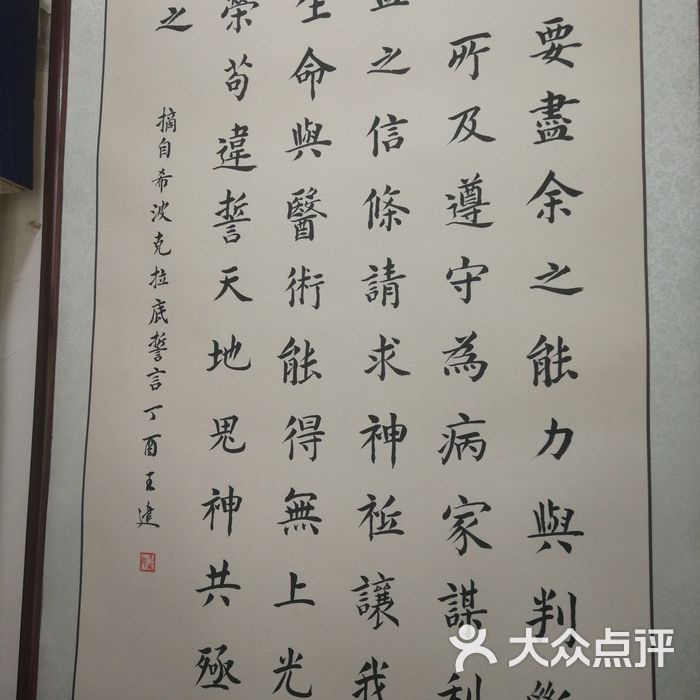 要盡余之能力與判斷
所及遵守為病家謀利
益之信條請求神祗讓我
生命與醫術能得無上光
榮苟違誓天地鬼神共殛
之
摘自希波克拉底誓言丁酉王建
大众点评